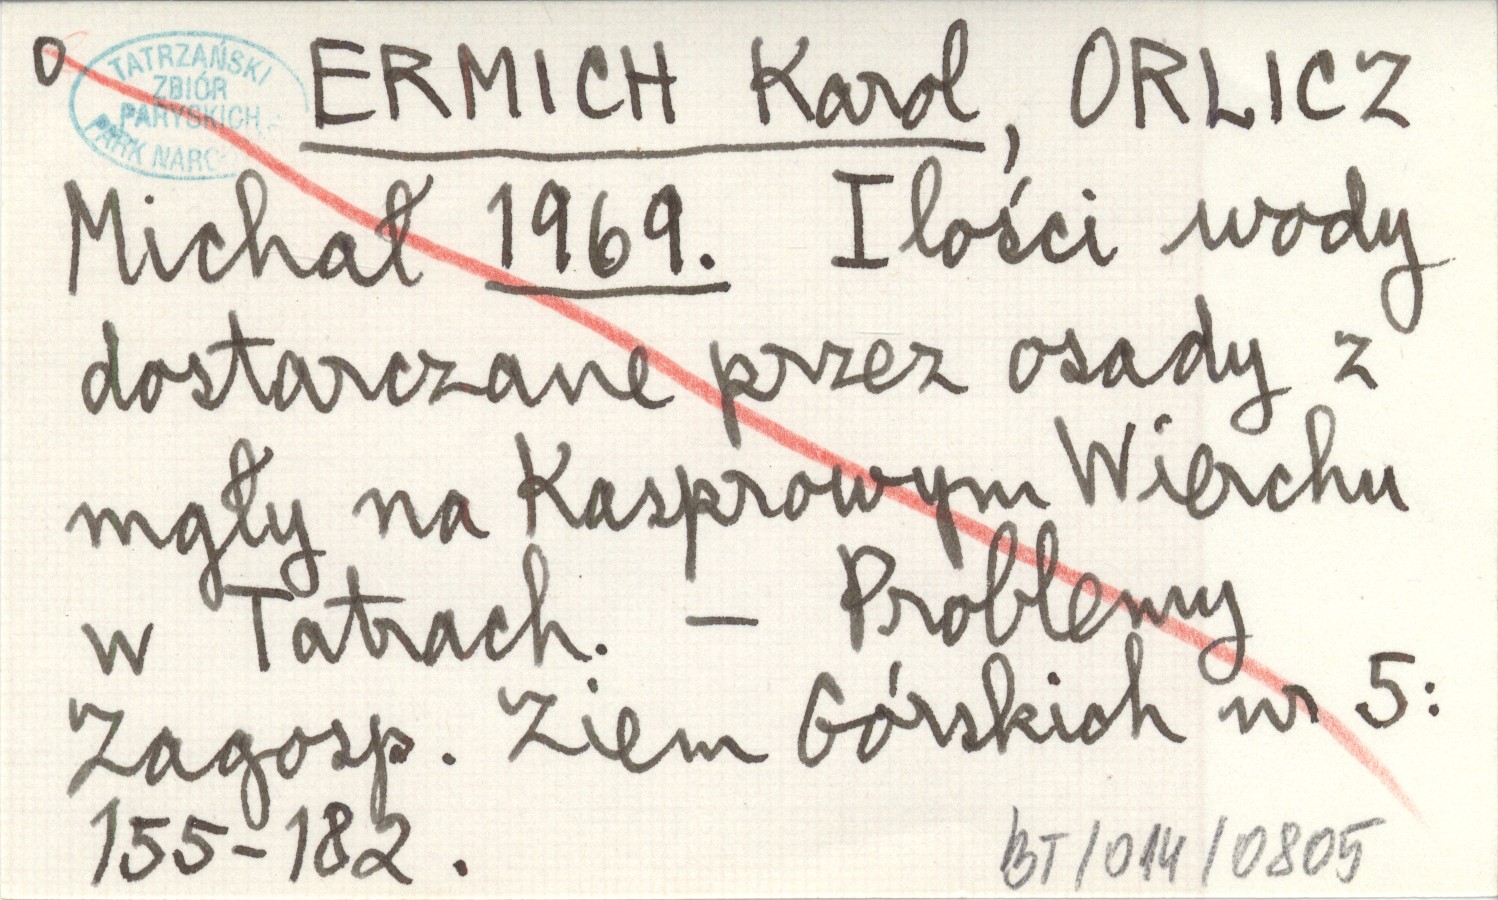 O
TATRZAŃSKI
ZBIÓR
PARYSKICH
PARK NARO
ERMICH Karol, ORLICZ
Michał 1969. Ilości wody
dostarczane przez osady z
mgły na Kasprowym Wierchu
w Tatrach. — Problemy
Zagosp. Ziem Górskich nr 5:
155-182.
BT/014/0805